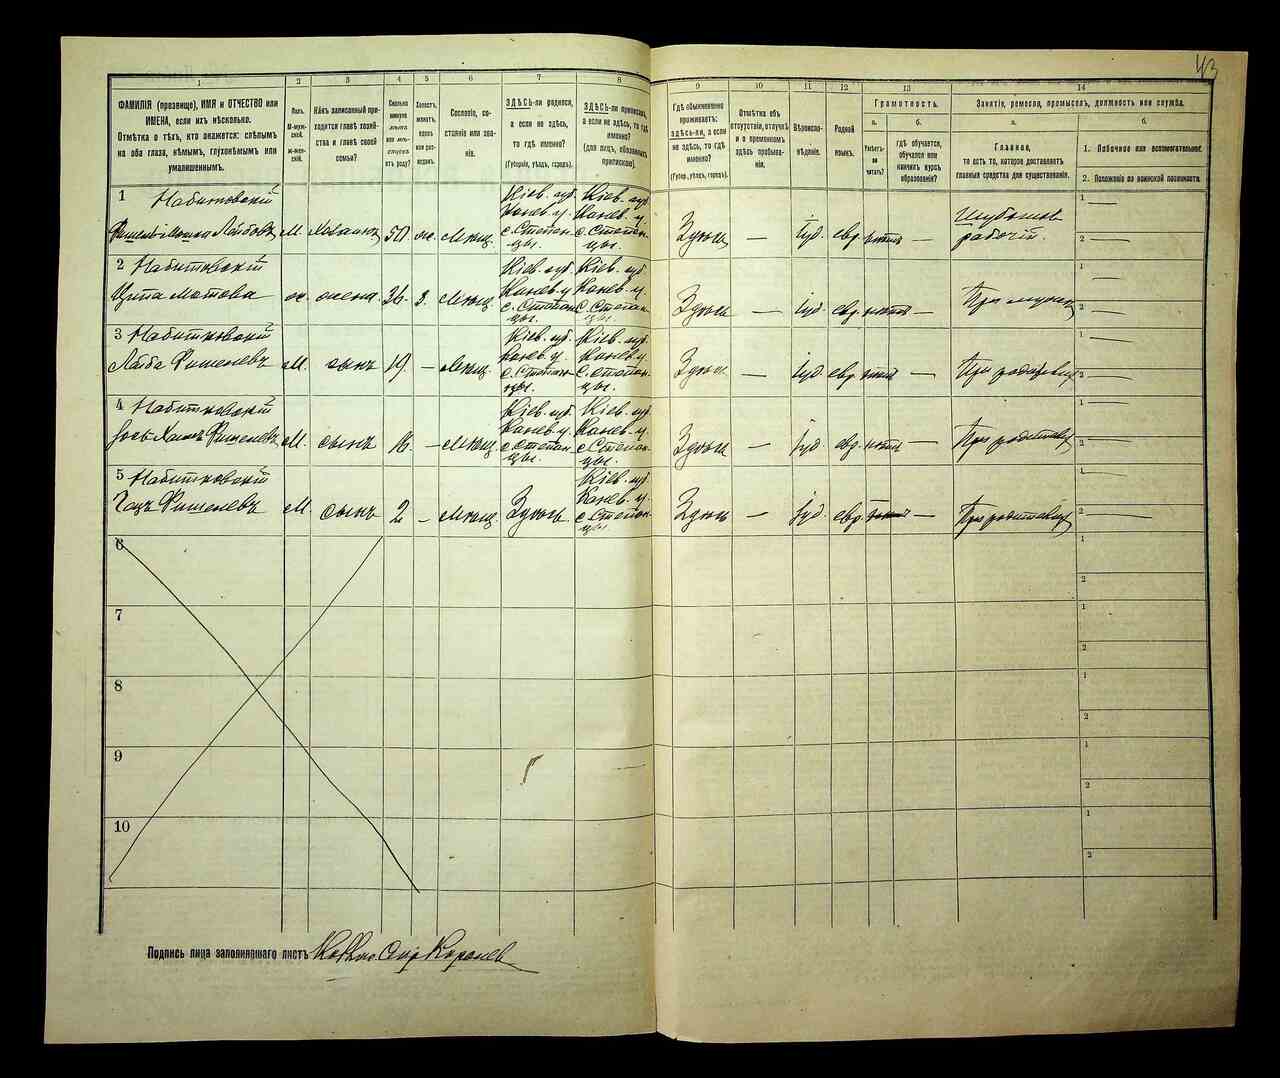 43
1 2 3 4 5 6 7 8 9 10 11 12 13 14
ФАМИЛІЯ (прозвище), ИМЯ и ОТЧЕСТВО или
ИМЕНА, если ихъ нѣсколько.
Отмѣтка о тѣхъ, кто окажется: слѣпымъ
на оба глаза, нѣмымъ, глухонѣмымъ или
умалишеннымъ.
Полъ.
М-муж-
ской.
ж-жен-
скій.
Какъ записанный при-
ходится главѣ хозяй-
ства и главѣ своей
семьи?
Сколько
минуло
лѣтъ
или мѣ-
сяцевъ
отъ роду?
Холостъ,
женатъ,
вдовъ
или раз-
веденъ.
Сословіе, со-
стояніе или зва-
ніе.
ЗДѢСЬ-ли родился,
а если не здѣсь,
то гдѣ именно?
(Губернія, уѣздъ, городъ).
ЗДѢСЬ-ли приписанъ,
а если не здѣсь, то гдѣ
именно?
(для лицъ, обязанныхъ
припискою).
Гдѣ обыкновенно
проживаетъ:
здѣсь-ли, а если
не здѣсь, то гдѣ
именно?
(Губер., уѣздъ, городъ).
Отмѣтка объ
отсутствіи, отлучкѣ
и о временномъ
здѣсь пребыва-
ніи.
Вѣроиспо-
вѣданіе.
Родной
языкъ.
Грамотность.
а. б.
Умѣетъ-
ли
читать?
гдѣ обучается,
обучался или
кончилъ курсъ
образованія?
Занятіе, ремесло, промыселъ, должность или служба.
а. б.
Главное,
то есть то, которое доставляетъ
главныя средства для существованія.
1. Побочное или вспомогательное.
2. Положеніе по воинской повинности.
1 Набитовскій
Фишель Мошко Лейбовъ М. Хозяинъ 50 ж. Мѣщ.
Кіев. губ. Канев. у. с. Степан-цы.
Кіев. губ. Канев. у. с. Степан-цы.
Здѣсь — Іуд. евр. —
рабочій
1 —
2 —
2 Набитковскій
Ципа Мотова ж. жена 36 з. Мѣщ.
Кіев. губ. Канев. у. с. Степан-цы.
Кіев. губ. Канев. у. с. Степан-цы.
Здѣсь — Іуд. евр. —
При мужѣ
1 —
2 —
3 Набитковскій
Лейба Фишелевъ М. сынъ 19 — Мѣщ.
Кіев. губ. Канев. у. с. Степан-цы.
Кіев. губ. Канев. у. с. Степан-цы.
Здѣсь — Іуд. евр. —
При родителяхъ
1 —
2 —
4 Набитковскій
Фишелевъ М. сынъ 16 — Мѣщ.
Кіев. губ. Канев. у. с. Степан-цы.
Кіев. губ. Канев. у. с. Степан-цы.
Здѣсь — Іуд. евр. —
При родителяхъ
1 —
2 —
5 Набитковскій
Фишелевъ М. сынъ 2 — Мѣщ. Здѣсь.
Кіев. губ. Канев. у. с. Степан-цы.
Здѣсь — Іуд. евр. —
При родителяхъ
1 —
2 —
6
1
2
7
1
2
8
1
2
9
1
2
10
1
2
Подпись лица заполнявшаго листъ